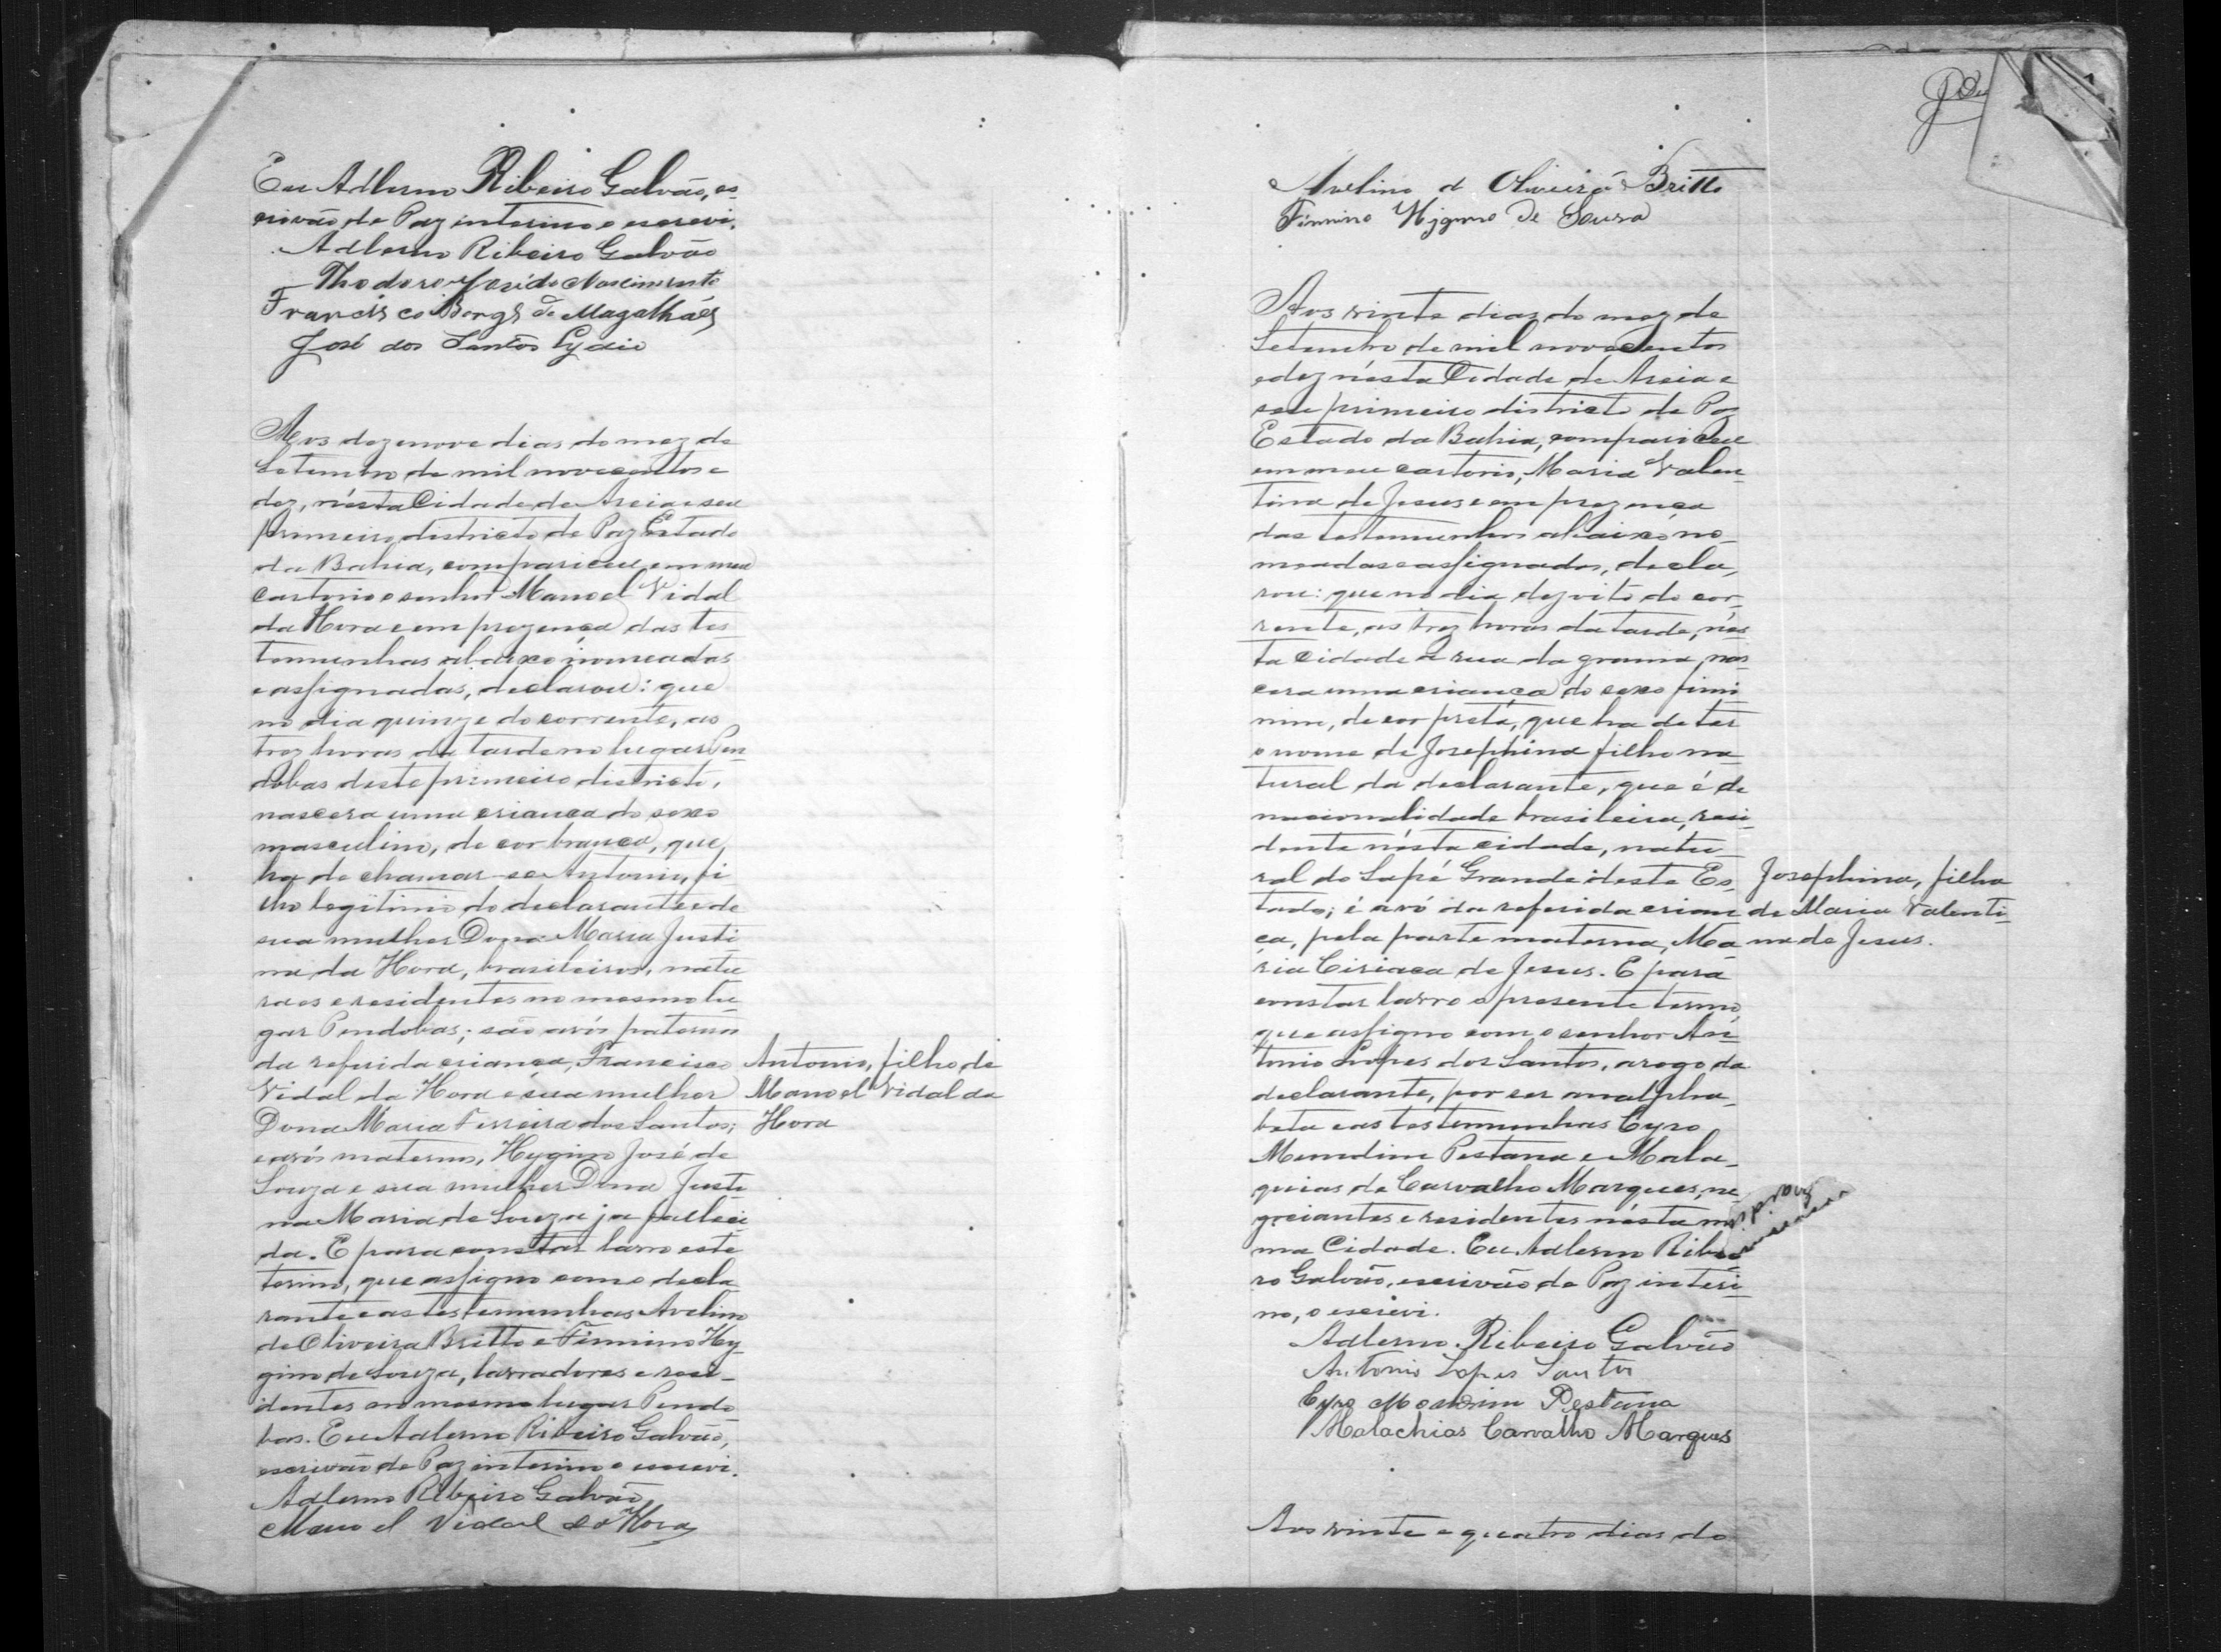 Eu Adlerno Ribeiro Galvão, es-
crivão de Paz interino o escrevi.
Adlerno Ribeiro Galvão
Thodoro José do Nascimento
Francisco Borgs de Magalhães
José dos Santos Lydio
Aos dezenove dias do mez de
Setembro de mil novecentos e
dez, nésta Cidade de Areia e seu
primeiro districto de Paz Estado
da Bahia, compariceu em meu
cartorio o senhor Manoel Vidal
da Hora e em prezença das tes
temunhas abaixo nomeadas
e assignadas, declarou: que
no dia quinze do corrente, as
trez horas da tarde no lugar Pen-
dobas deste primeiro districto,
nascera uma criança do sexo
masculino, de cor branca, que
ha de chamar-se Antonio, fi
lho legitimo do declarante e de
sua mulher Dona Maria Justi-
na da Hora, brasileiros, natu
raes e residentes no mesmo lu-
gar Pendobas; são avós paternos
da referida criança, Francisco
Vidal da Hora e sua mulher
Dona Maria Ferreira dos Santos;
e avós maternos, Hygino José de
Souza e sua mulher Dona Justi-
na Maria de Souza ja falleci-
da. E para constar lavro este
termo, que assigno com o decla
rante e as testemunhas Avelino
de Oliveira Britto e Firmino Hy-
gino de Souza, lavradores e resi-
dentes no mesmo lugar Pendo-
bas. Eu Adlerno Ribeiro Galvão,
escrivão de Paz interino o escrevi.
Adlerno Ribeiro Galvão
Manoel Vidal da Hora
Antonio, filho de
Manoel Vidal da
Hora
Avelino d Oliveira Britto
Firmino Hygino de Souza
Aos vinte dias do mez de
Setembro de mil novecentos
e dez nésta Cidade de Areia e
seu primeiro districto de Paz
Estado da Bahia, compariceu
em meu cartorio, Maria Valen-
tina de Jesus e em prezença
das testemunhas abaixo no-
meadas e assignadas, decla-
rou: que no dia dezoito do cor-
rente, as trez horas da tarde, nés-
ta cidade a rua da grama, nas-
cera uma criança do sexo fimi
nino, de cor preta, que ha de ter
o nome de Josephina filha na
tural da declarante, que é de
nacionalidade brasileira, resi-
dente nésta cidade, natu-
ral do Sapé Grande deste Es-
tado; é avó da referida crian
ça, pela parte materna, Ma
ria Ciriaca de Jesus. E para
constar lavro o presente termo,
que assigno com o senhor An
tonio Lopes dos Santos, a rogo da
declarante, por ser analpha-
beta e as testemunhas Cyro
Mendim Pestana e Mala-
quias de Carvalho Marques, ne-
gociantes e residentes nésta mes
ma Cidade. Eu Adlerno Ribei
ro Galvão, escrivão de Paz interi-
no, o escrevi.
Adlerno Ribeiro Galvão
Antonio Lopes Santos
Cyro Mendim Pestana
Malachias Carvalho Marques
Aos vinte e quatro dias do
Josephina, filha
de Maria Valenti-
na de Jesus.